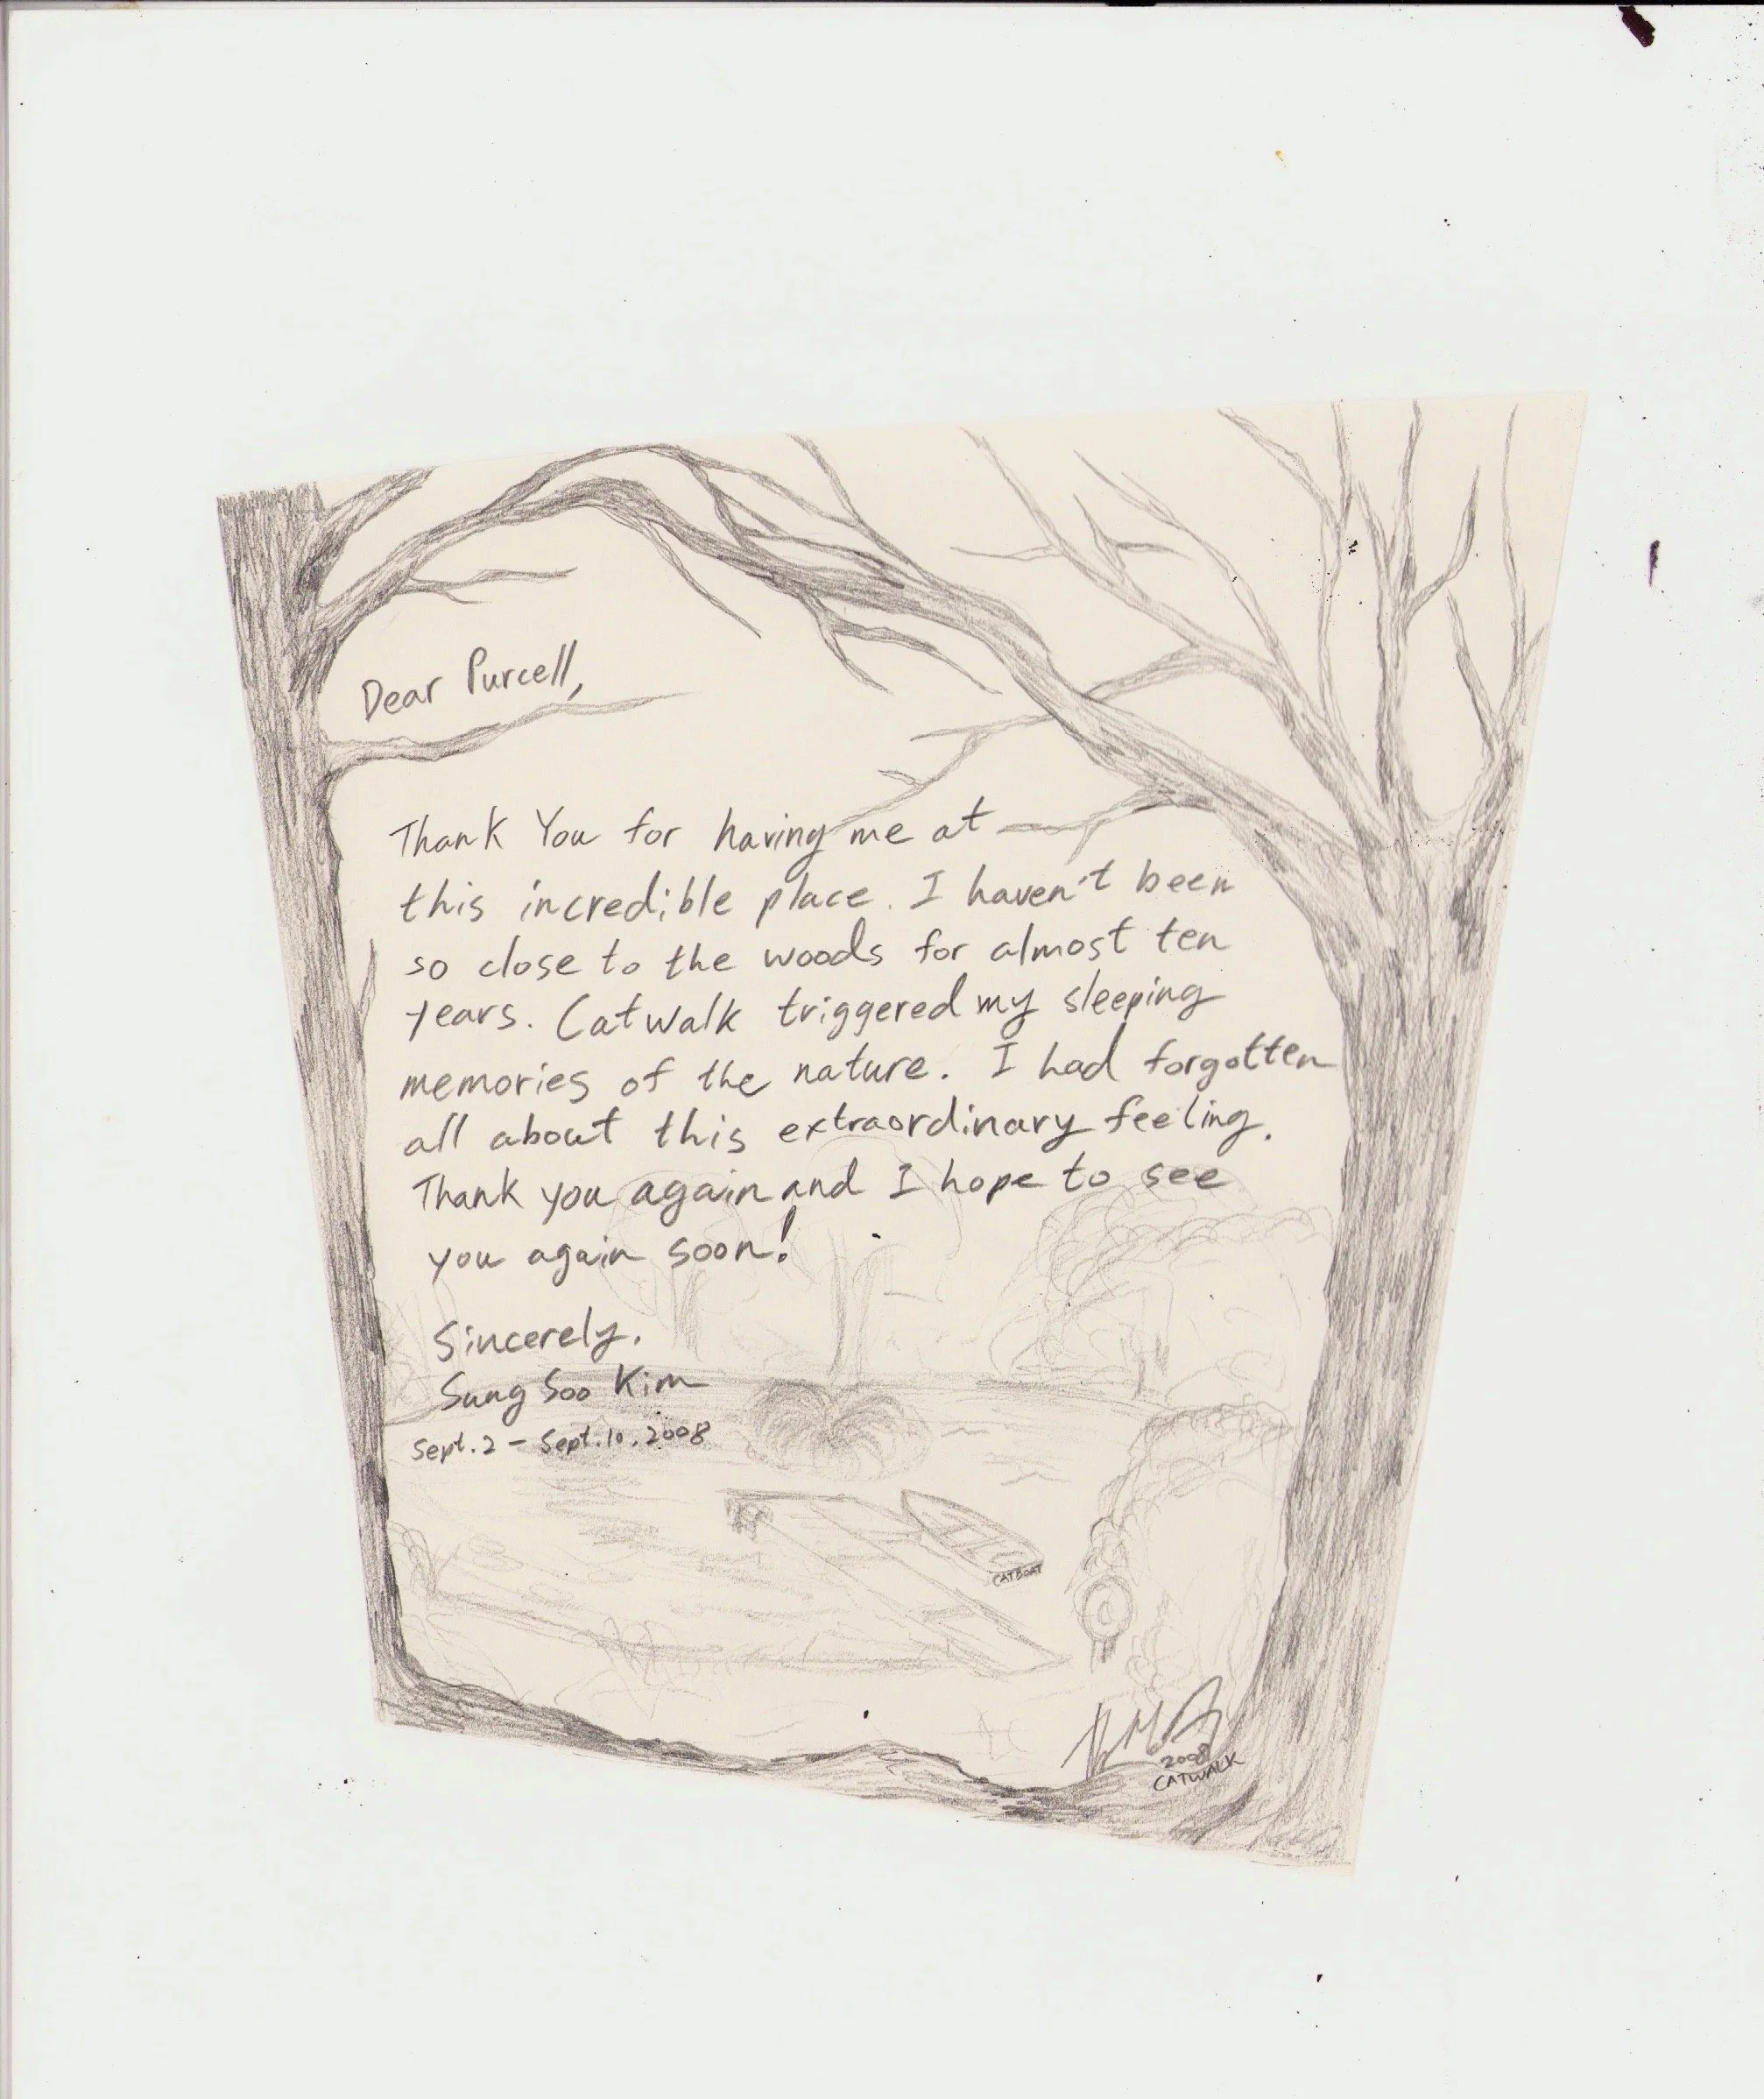 Dear Purcell,
Thank You for having me at
this incredible place. I haven't been
so close to the woods for almost ten
years. Catwalk triggered my sleeping
memories of the nature. I had forgotten
all about this extraordinary feeling.
Thank you again and I hope to see
you again soon!
Sincerely,
Sung Soo Kim
Sept. 2 - Sept. 10, 2008
CATBOAT
2008
CATWALK